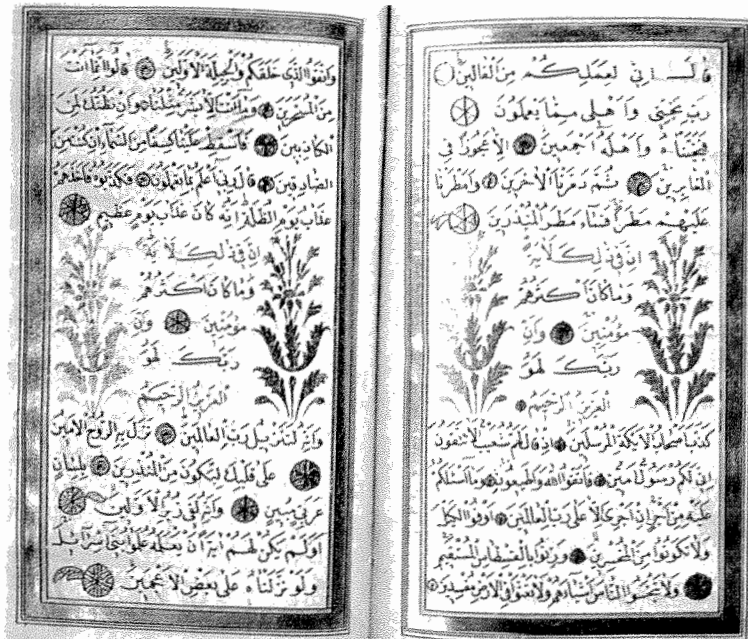 قال اني لعملكم من القالين
رب نجني واهلي مما يعملون
فنجيناه واهله اجمعين الا عجوزا في
الغابرين ثم دمرنا الاخرين وامطرنا
عليهم مطرا فساء مطر المنذرين
ان في ذلك لاية
وما كان اكثرهم
مؤمنين وان
ربك لهو
العزيز الرحيم
كذب اصحاب الايكة المرسلين اذ قال لهم شعيب الا تتقون
اني لكم رسول امين فاتقوا الله واطيعون وما اسئلكم
عليه من اجر ان اجري الا على رب العالمين اوفوا الكيل
ولا تكونوا من المخسرين وزنوا بالقسطاس المستقيم
ولا تبخسوا الناس اشياءهم ولا تعثوا في الارض مفسدين
واتقوا الذي خلقكم والجبلة الاولين قالوا انما انت
من المسحرين وما انت الا بشر مثلنا وان نظنك لمن
الكاذبين فاسقط علينا كسفا من السماء ان كنت من
الصادقين قال ربي اعلم بما تعملون فكذبوه فاخذهم
عذاب يوم الظلة انه كان عذاب يوم عظيم
ان في ذلك لاية
وما كان اكثرهم
مؤمنين وان
ربك لهو
العزيز الرحيم
وانه لتنزيل رب العالمين نزل به الروح الامين
على قلبك لتكون من المنذرين بلسان
عربي مبين وانه لفي زبر الاولين
اولم يكن لهم اية ان يعلمه علموا بني اسرائيل
ولو نزلناه على بعض الاعجمين